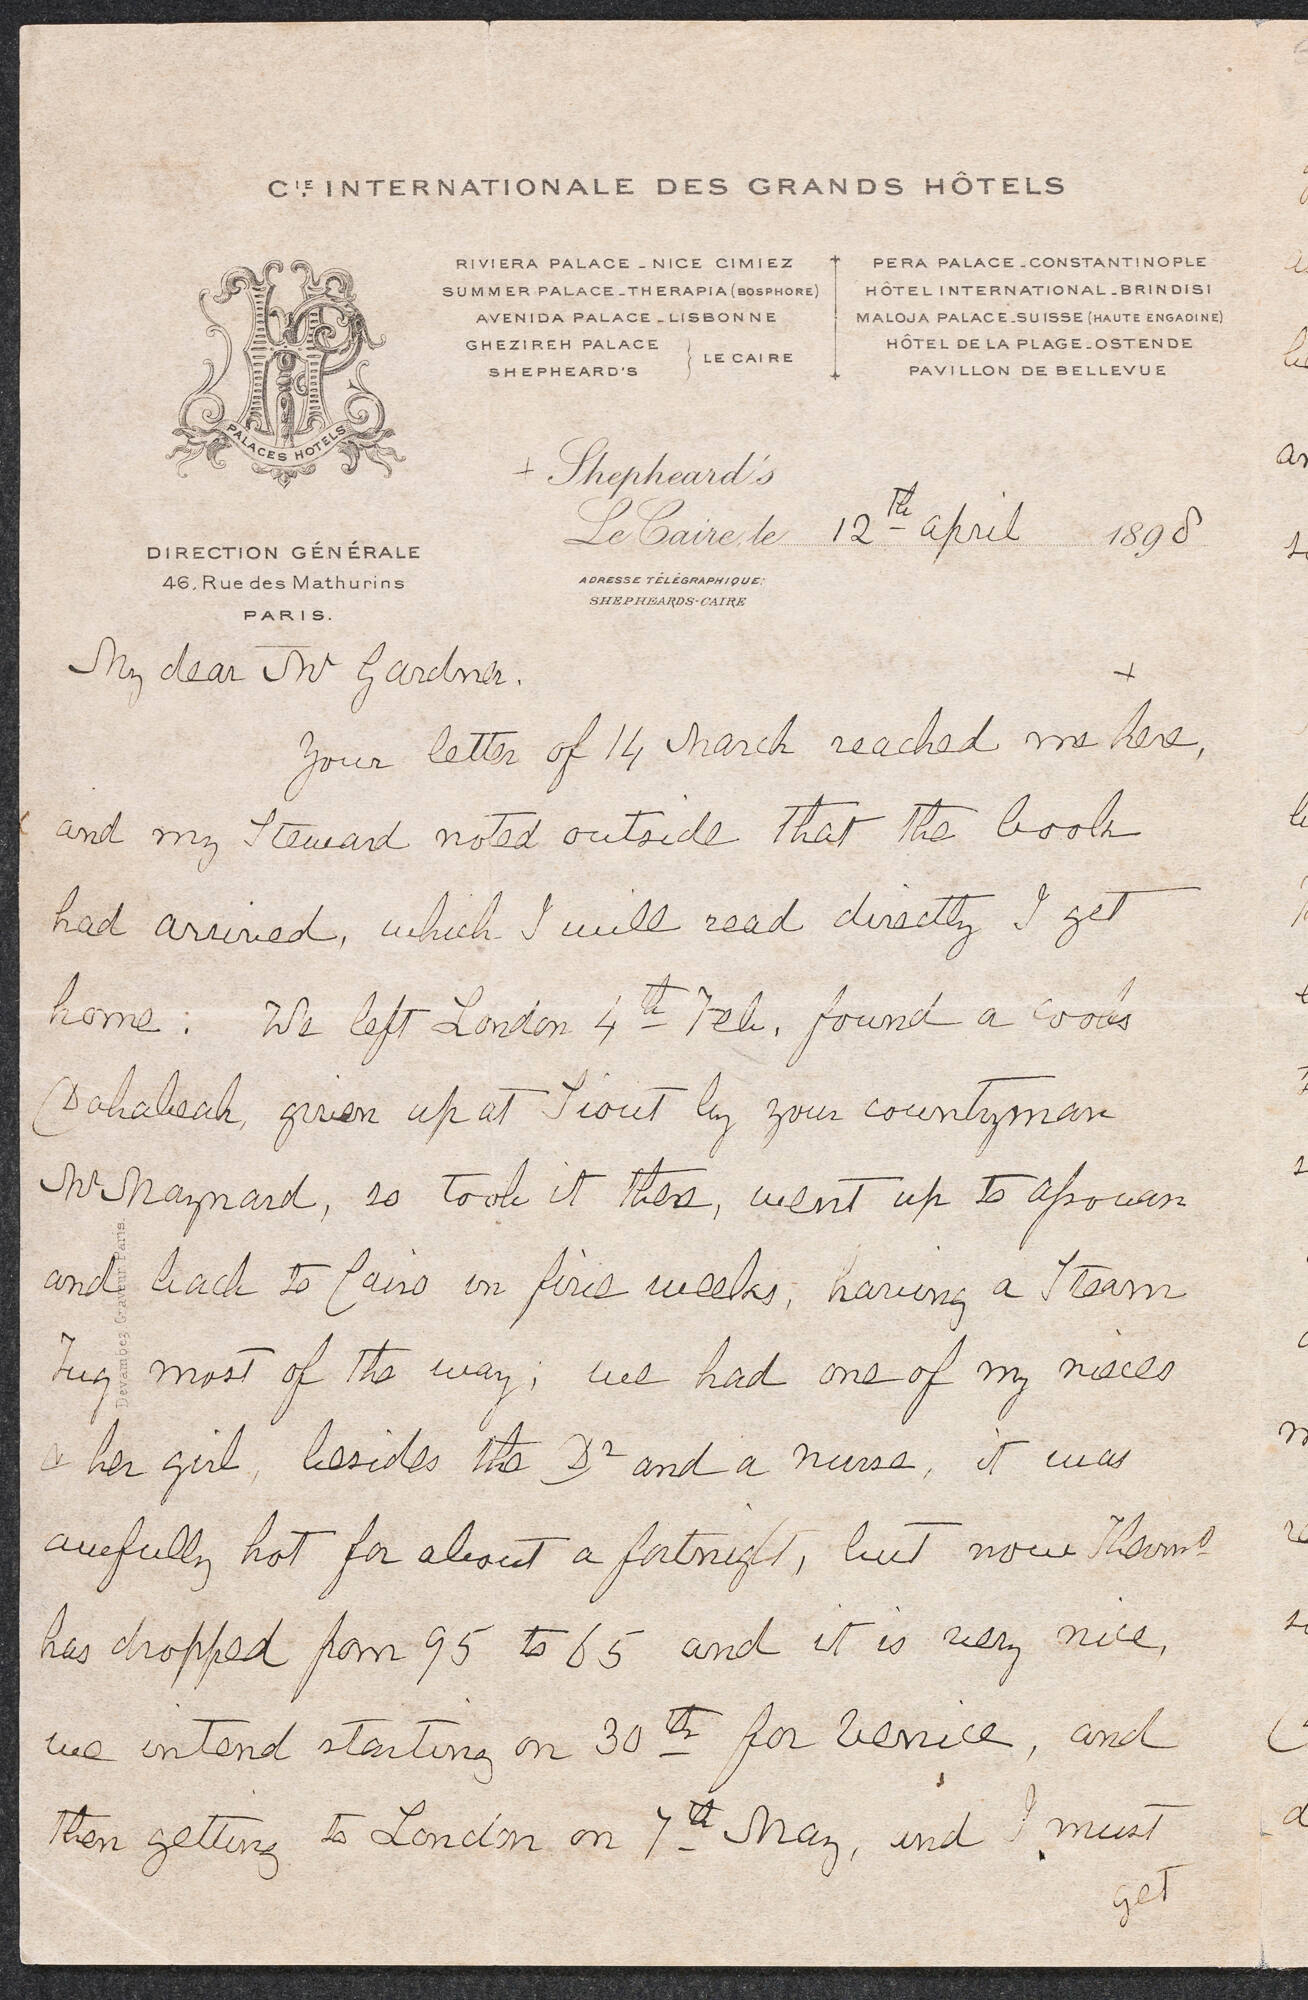 CIE INTERNATIONALE DES GRANDS HÔTELS
RIVIERA PALACE - NICE CIMIEZ
SUMMER PALACE - THERAPIA (BOSPHORE)
AVENIDA PALACE - LISBONNE
GHEZIREH PALACE
SHEPHEARD'S
LE CAIRE
PERA PALACE - CONSTANTINOPLE
HÔTEL INTERNATIONAL - BRINDISI
MALOJA PALACE - SUISSE (HAUTE ENGADINE)
HÔTEL DE LA PLAGE - OSTENDE
PAVILLON DE BELLEVUE
PALACES HOTELS
DIRECTION GÉNÉRALE
46, Rue des Mathurins
PARIS.
+ Shepheard's
Le Caire, le 12th april 1898
ADRESSE TÉLÉGRAPHIQUE:
SHEPHEARDS-CAIRE
My dear Mr Gardner.
+
Your letter of 14 March reached me here,
and my Steward noted outside that the book
had arrived, which I will read directly I get
home: We left London 4th Feb, found a Cooks
Dahabeah, given up at Siout by your countryman
Mr Maynard, so took it there, went up to assouan
and back to Cairo in five weeks, having a Steam
Tug most of the way; we had one of my nieces
& her girl, besides the Dr and a nurse, it was
awfully hot for about a fortnight, but now Thermo
has dropped from 95 to 65 and it is very nice,
we intend starting on 30th for Venice, and
then getting to London on 7th May, and I must
get
Devambez Graveur Paris.